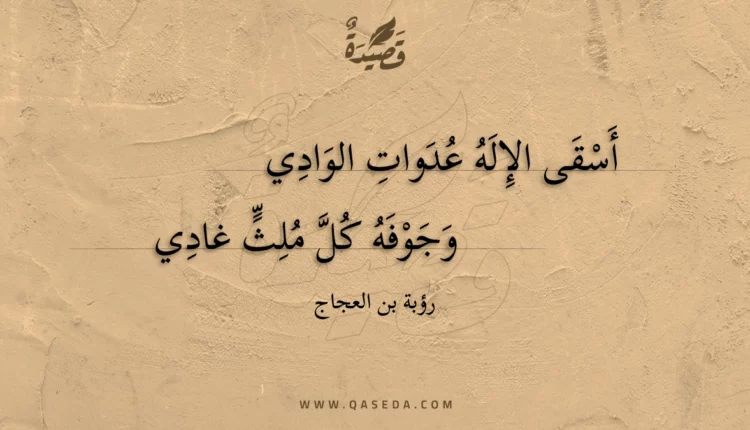 قَصِيدَةٌ
أَسْقَى الإِلَهُ عُدَواتِ الوَادِي
وَجَوْفَهُ كُلَّ مُلِثٍّ غادِي
رؤبة بن العجاج
WWW.QASEDA.COM